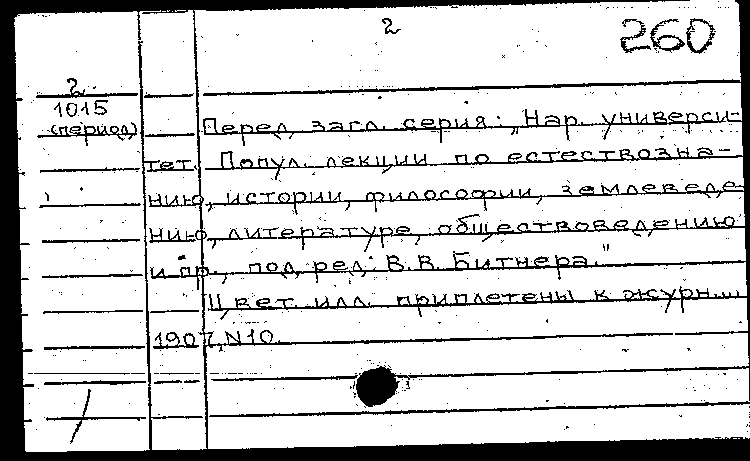 2
260
2
1015
(период)
Перед загл. серия: „Нар. универси-
тет. Попул. лекции по естествозна-
нию, истории, философии, землеведе-
нию, литературе, обществоведению
и пр., под ред. В.В. Битнера."
Цвет. илл. приплетены к журн....
1907, N10.